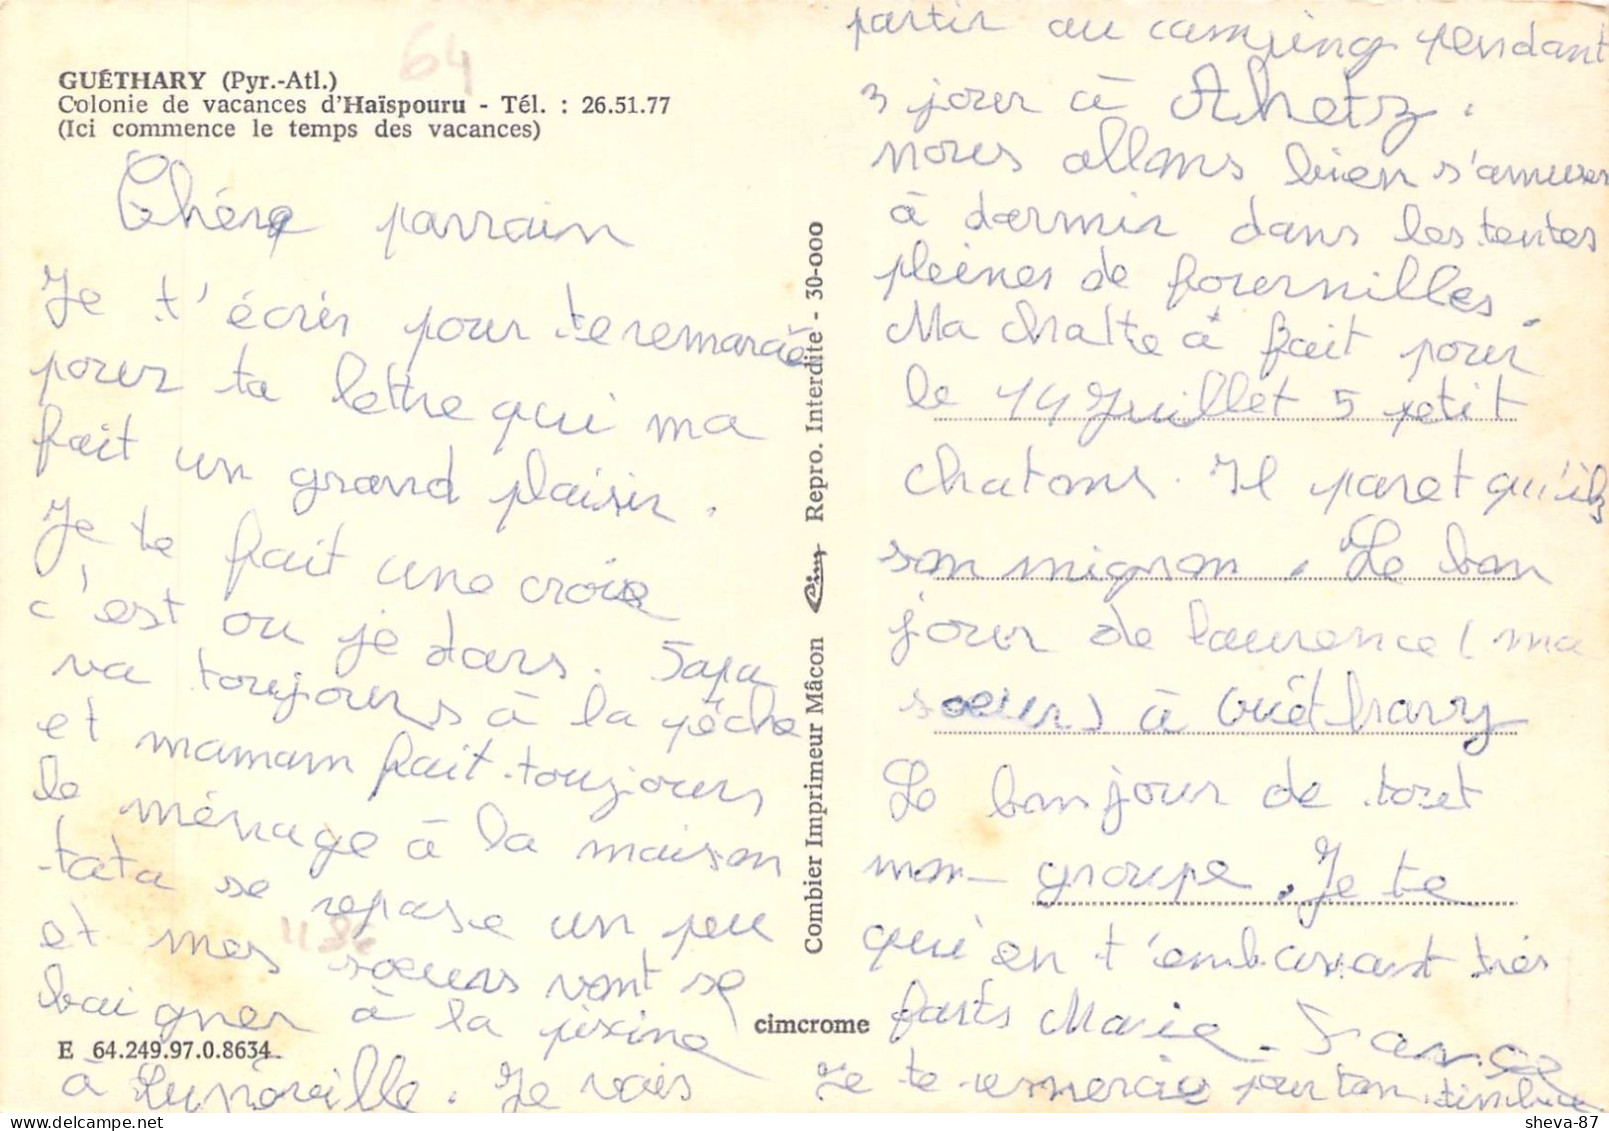 64
GUÉTHARY (Pyr.-Atl.)
Colonie de vacances d'Haïspouru - Tél. : 26.51.77
(Ici commence le temps des vacances)
Chére parrain
Je t'écris pour te remarcie
pour ta lettre qui ma
fait un grand plaisir.
Je te fait une croix
c'est ou je dors. Papa
va toujours à la pêche
et mamam fait toujours
le ménage à la maison
tata se repose un peu
et mes soeurs vont se
baigner à la pixine
à Lunéville. Je vais
partir au camping pendant
3 jour à Ahetz.
nous allons bien s'amuser
à dormir dans les tentes
pleines de fournilles.
Ma chatte à fait pour
le 14 Juillet 5 petit
chatons. Il paret qu'ils
son mignon. Le bon
jour de laurence (ma
soeur) à Guéthary
Le bonjour de tout
mon groupe. Je te
qui'en t'embrassant très
forts Marie-France
Je te remercie pour ton timbre
E 64.249.97.0.8634
cimcrome
Combier Imprimeur Mâcon Cim Repro. Interdite - 30-000
sheva-87